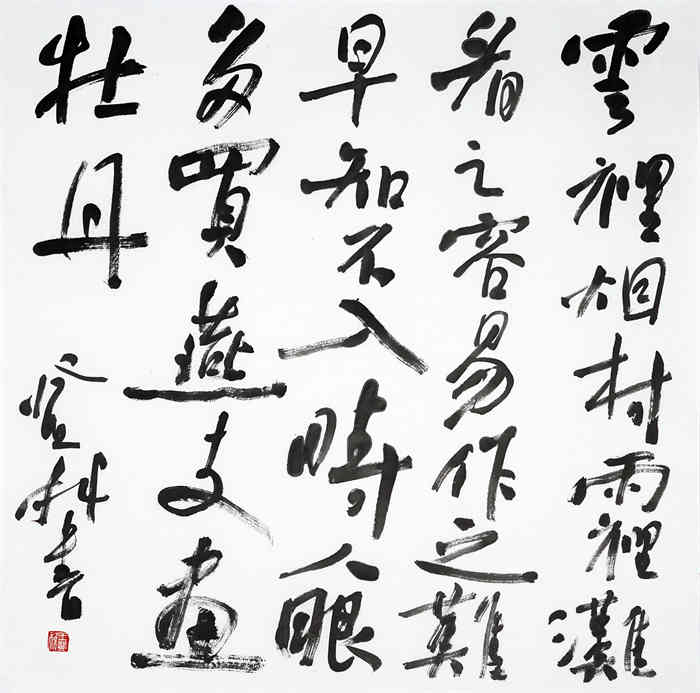 雲裡烟村雨裡灘
看之容易作之難
早知不入時人眼
多買燕支畫
牡丹
登科書